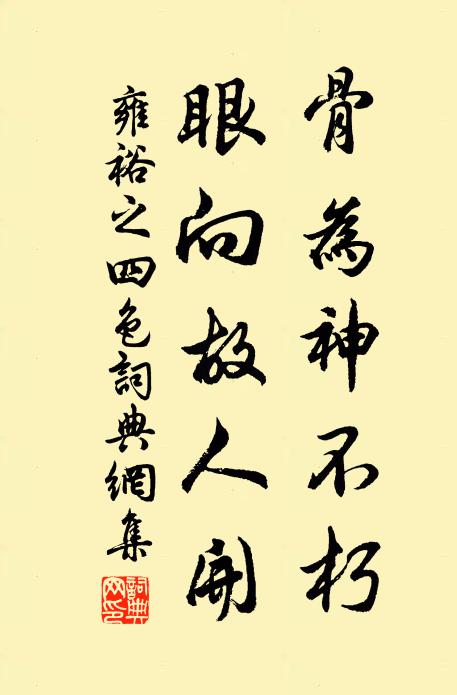 骨為神不朽
眼向故人開
雍裕之四色詞典網集
詞典網印